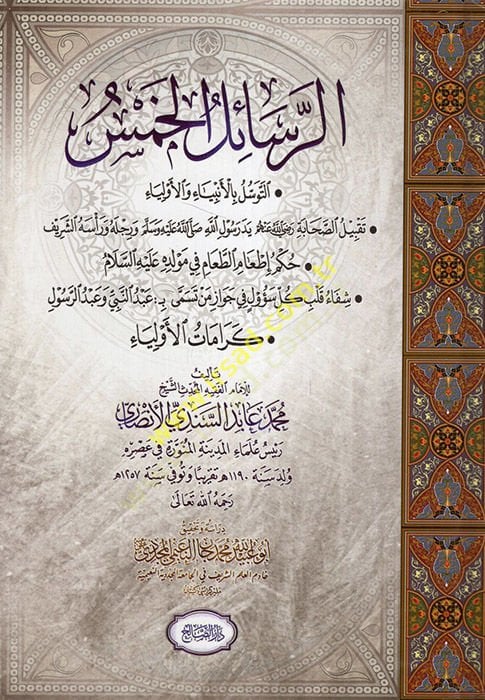 الرَّسَائِلُ الخَمْسُ
• التَّوَسُّلُ بِالأَنْبِيَاءِ وَالأَوْلِيَاءِ
• تَقْبِيلُ الصَّحَابَةِ رَضِيَ اللهُ عَنْهُم يَدَ رَسُولِ اللهِ صَلَّى اللهُ عَلَيْهِ وَسَلَّمَ وَرِجْلَهُ وَرَأْسَهُ الشَّرِيفَ
• حُكْمُ إِطْعَامِ الطَّعَامِ فِي مَوْلِدِهِ عَلَيْهِ السَّلَامُ
• شِفَاءُ قَلْبِ كُلِّ سَؤُولٍ فِي جَوَازِ مَنْ تَسَمَّى بِـ: عَبْدِ النَّبِيِّ وَعَبْدِ الرَّسُولِ
• كَرَامَاتُ الأَوْلِيَاءِ
تَأليفُ
للإمَام الفَقِيه المُحَدِّث الشَّيْخ
مُحَمَّد عَابِد السِّنْدِيّ الأَنْصَارِيّ
رَئِيسُ عُلَمَاءِ المَدِينَةِ المُنَوَّرَةِ فِي عَصْرِهِ
وُلِدَ سَنَة ١١٩٠هـ تَقْرِيبًا وَتُوُفِّيَ سَنَة ١٢٥٧هـ
رَحِمَهُ اللهُ تَعَالَى
دِرَاسَة وَتَحْقِيق
خَادِم العِلْم الشَّرِيف فِي الجَامِعَة المُجَدِّدِيَّة النَّعِيمِيَّة
دَارُ الصَّالِح